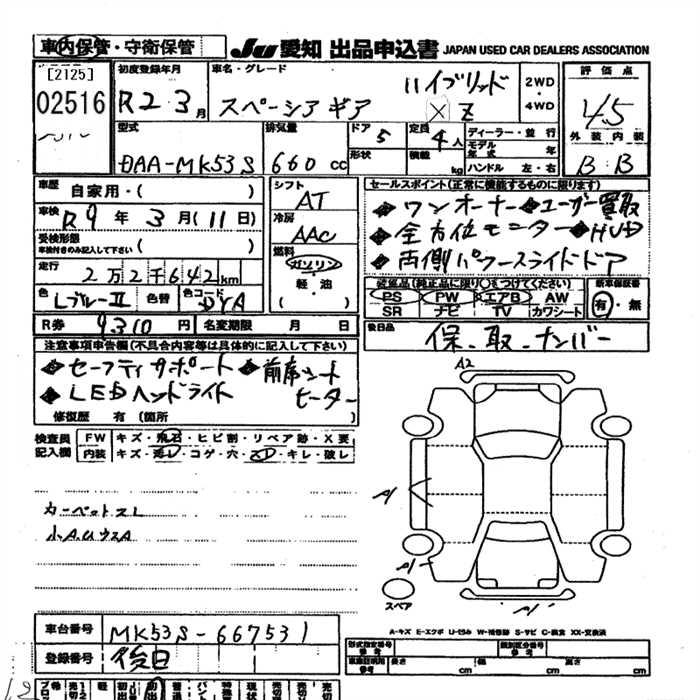 車内保管・守衛保管 JU 愛知 出品申込書 JAPAN USED CAR DEALERS ASSOCIATION
[2125]
02516
初度登録年月
R2.3月
車名・グレード
スペーシアギア
ハイブリッド
XZ
2WD
4WD
評価点
4.5
外装 内装
B B
型式
DAA-MK53S
排気量
660cc
ドア
5
形状
定員
4人
積載
kg
ディーラー・並行
モデル年式 年
ハンドル 左・右
車歴
自家用・( )
車検
R9年3月(11日)
受検形態
車検付きのみ記入して下さい ( )
走行
2万2千642km
色
LブルーII
色替
色コード
DYA
R券 9310円 名変期限 月 日
シフト
AT
冷房
AAC
燃料
ガソリン
軽・油
( )
セールスポイント(正常に機能するものに限ります)
◆ワンオーナー ◆ユーザー買取
◆全方位モニター ◆HUD
◆両側パワースライドドア
装備品(純正品に限り○をつけてください) 新車保証書
PS PW エアB AW
SR ナビ TV カワシート
有・無
後日品
保.取.ナンバー
注意事項申告欄(不具合内容等は具体的に記入して下さい)
◆セーフティサポート ◆前席シート
◆LEDヘッドライト ヒーター
修復歴 有(箇所 )
検査員記入欄
FW キズ・飛石・ヒビ割・リペア跡・X要
内装 キズ・汚レ・コゲ・穴・スレ・キレ・破レ
カーペットスレ
小A.U ウスA
A2
A1
A1
スペア
A-キズ E-エクボ U-凹み W-補修跡 S-サビ C-腐食 XX-交換済
車台番号
MK53S-667531
登録番号
後日
型式指定番号 参考
類別区分番号 参考
車庫証明用 参考
長さ cm 幅 cm 高さ cm